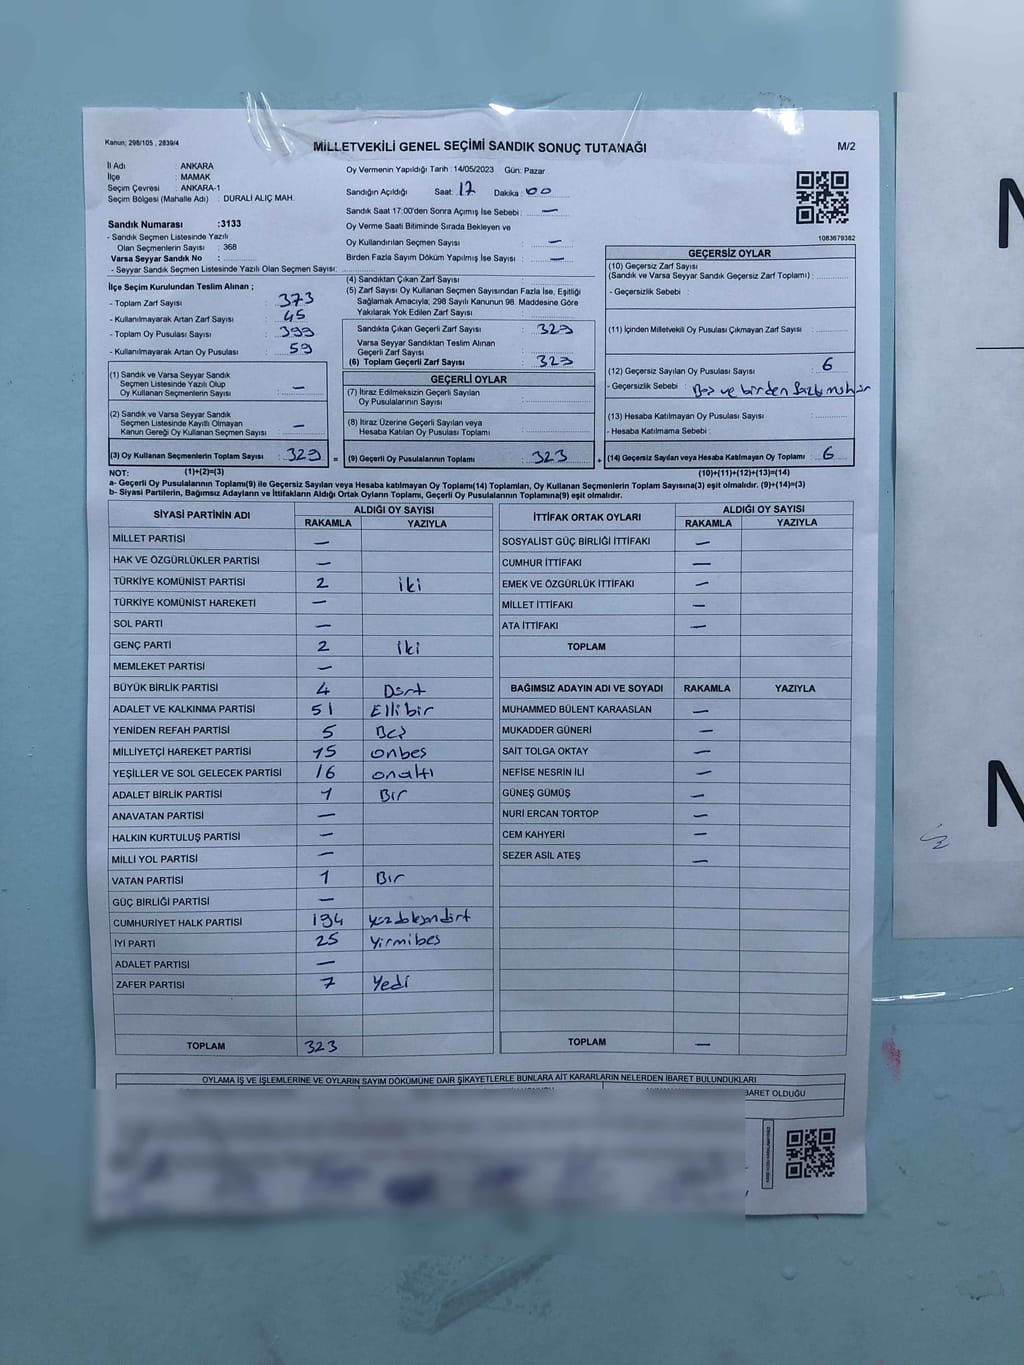 Kanun: 298/105 , 2839/4
MİLLETVEKİLİ GENEL SEÇİMİ SANDIK SONUÇ TUTANAĞI
M/2
İl Adı : ANKARA
İlçe : MAMAK
Seçim Çevresi : ANKARA-1
Seçim Bölgesi (Mahalle Adı) : DURALİ ALIÇ MAH.
Sandık Numarası :3133
- Sandık Seçmen Listesinde Yazılı
Olan Seçmenlerin Sayısı : 368
Varsa Seyyar Sandık No :
- Seyyar Sandık Seçmen Listesinde Yazılı Olan Seçmen Sayısı:
Oy Vermenin Yapıldığı Tarih : 14/05/2023 Gün: Pazar
Sandığın Açıldığı Saat: 17 Dakika: 00
Sandık Saat 17:00'den Sonra Açımış İse Sebebi : —
Oy Verme Saati Bitiminde Sırada Bekleyen ve
Oy Kullandırılan Seçmen Sayısı : —
Birden Fazla Sayım Döküm Yapılmış İse Sayısı : —
1083679382
İlçe Seçim Kurulundan Teslim Alınan ;
- Toplam Zarf Sayısı : 373
- Kullanılmayarak Artan Zarf Sayısı : 45
- Toplam Oy Pusulası Sayısı : 399
- Kullanılmayarak Artan Oy Pusulası : 59
(1) Sandık ve Varsa Seyyar Sandık
Seçmen Listesinde Yazılı Olup
Oy Kullanan Seçmenlerin Sayısı : —
(2) Sandık ve Varsa Seyyar Sandık
Seçmen Listesinde Kayıtlı Olmayan
Kanun Gereği Oy Kullanan Seçmen Sayısı : —
(3) Oy Kullanan Seçmenlerin Toplam Sayısı : 329 =
(4) Sandıktan Çıkan Zarf Sayısı :
(5) Zarf Sayısı Oy Kullanan Seçmen Sayısından Fazla İse, Eşitliği
Sağlamak Amacıyla; 298 Sayılı Kanunun 98. Maddesine Göre
Yakılarak Yok Edilen Zarf Sayısı :
Sandıkta Çıkan Geçerli Zarf Sayısı : 329
Varsa Seyyar Sandıktan Teslim Alınan
Geçerli Zarf Sayısı :
(6) Toplam Geçerli Zarf Sayısı : 323
GEÇERLİ OYLAR
(7) İtiraz Edilmeksizin Geçerli Sayılan
Oy Pusulalarının Sayısı :
(8) İtiraz Üzerine Geçerli Sayılan veya
Hesaba Katılan Oy Pusulası Toplamı :
(9) Geçerli Oy Pusulalarının Toplamı : 323 +
GEÇERSİZ OYLAR
(10) Geçersiz Zarf Sayısı
(Sandık ve Varsa Seyyar Sandık Geçersiz Zarf Toplamı) :
- Geçersizlik Sebebi :
(11) İçinden Milletvekili Oy Pusulası Çıkmayan Zarf Sayısı :
(12) Geçersiz Sayılan Oy Pusulası Sayısı : 6
- Geçersizlik Sebebi : Boş ve birden fazla mühür
(13) Hesaba Katılmayan Oy Pusulası Sayısı :
- Hesaba Katılmama Sebebi :
(14) Geçersiz Sayılan veya Hesaba Katılmayan Oy Toplamı : 6
NOT: (1)+(2)=(3)
(10)+(11)+(12)+(13)=(14)
a- Geçerli Oy Pusulalarının Toplamı(9) ile Geçersiz Sayılan veya Hesaba katılmayan Oy Toplamı(14) Toplamları, Oy Kullanan Seçmenlerin Toplam Sayısına(3) eşit olmalıdır. (9)+(14)=(3)
b- Siyasi Partilerin, Bağımsız Adayların ve İttifakların Aldığı Ortak Oyların Toplamı, Geçerli Oy Pusulalarının Toplamına(9) eşit olmalıdır.
SİYASİ PARTİNİN ADI ALDIĞI OY SAYISI
RAKAMLA YAZIYLA
MİLLET PARTİSİ —
HAK VE ÖZGÜRLÜKLER PARTİSİ —
TÜRKİYE KOMÜNİST PARTİSİ 2 iki
TÜRKİYE KOMÜNİST HAREKETİ —
SOL PARTİ —
GENÇ PARTİ 2 iki
MEMLEKET PARTİSİ —
BÜYÜK BİRLİK PARTİSİ 4 Dört
ADALET VE KALKINMA PARTİSİ 51 Ellibir
YENİDEN REFAH PARTİSİ 5 Beş
MİLLİYETÇİ HAREKET PARTİSİ 15 onbeş
YEŞİLLER VE SOL GELECEK PARTİSİ 16 onaltı
ADALET BİRLİK PARTİSİ 1 Bir
ANAVATAN PARTİSİ —
HALKIN KURTULUŞ PARTİSİ —
MİLLİ YOL PARTİSİ —
VATAN PARTİSİ 1 Bir
GÜÇ BİRLİĞİ PARTİSİ —
CUMHURİYET HALK PARTİSİ 194 yüzdoksandört
İYİ PARTİ 25 yirmibeş
ADALET PARTİSİ —
ZAFER PARTİSİ 7 Yedi
TOPLAM 323
İTTİFAK ORTAK OYLARI ALDIĞI OY SAYISI
RAKAMLA YAZIYLA
SOSYALİST GÜÇ BİRLİĞİ İTTİFAKI —
CUMHUR İTTİFAKI —
EMEK VE ÖZGÜRLÜK İTTİFAKI —
MİLLET İTTİFAKI —
ATA İTTİFAKI —
TOPLAM
BAĞIMSIZ ADAYIN ADI VE SOYADI RAKAMLA YAZIYLA
MUHAMMED BÜLENT KARAASLAN —
MUKADDER GÜNERİ —
SAİT TOLGA OKTAY —
NEFİSE NESRİN İLİ —
GÜNEŞ GÜMÜŞ —
NURİ ERCAN TORTOP —
CEM KAHYERİ —
SEZER ASİL ATEŞ —
TOPLAM —
OYLAMA İŞ VE İŞLEMLERİNE VE OYLARIN SAYIM DÖKÜMÜNE DAİR ŞİKAYETLERLE BUNLARA AİT KARARLARIN NELERDEN İBARET BULUNDUKLARI
BARET OLDUĞU